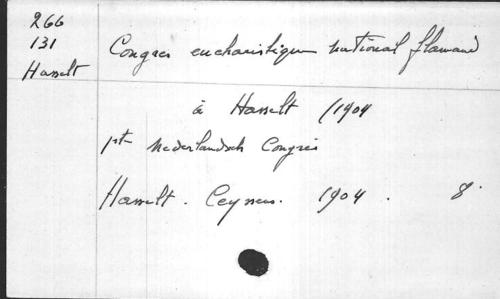 266
131
Hasselt
Congres eucharistique national flamand
à Hasselt (1904
1ste Nederlandsch Congres
Hasselt. Ceysens. 1904. 8.